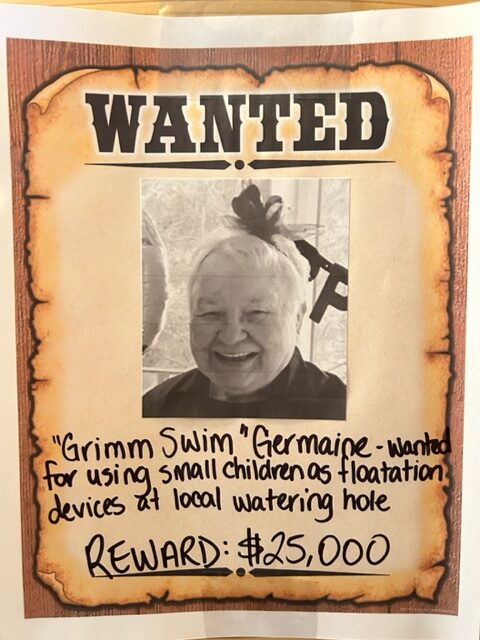 WANTED
"Grimm Swim" Germaine - wanted
for using small children as floatation
devices at local watering hole
REWARD: $25,000